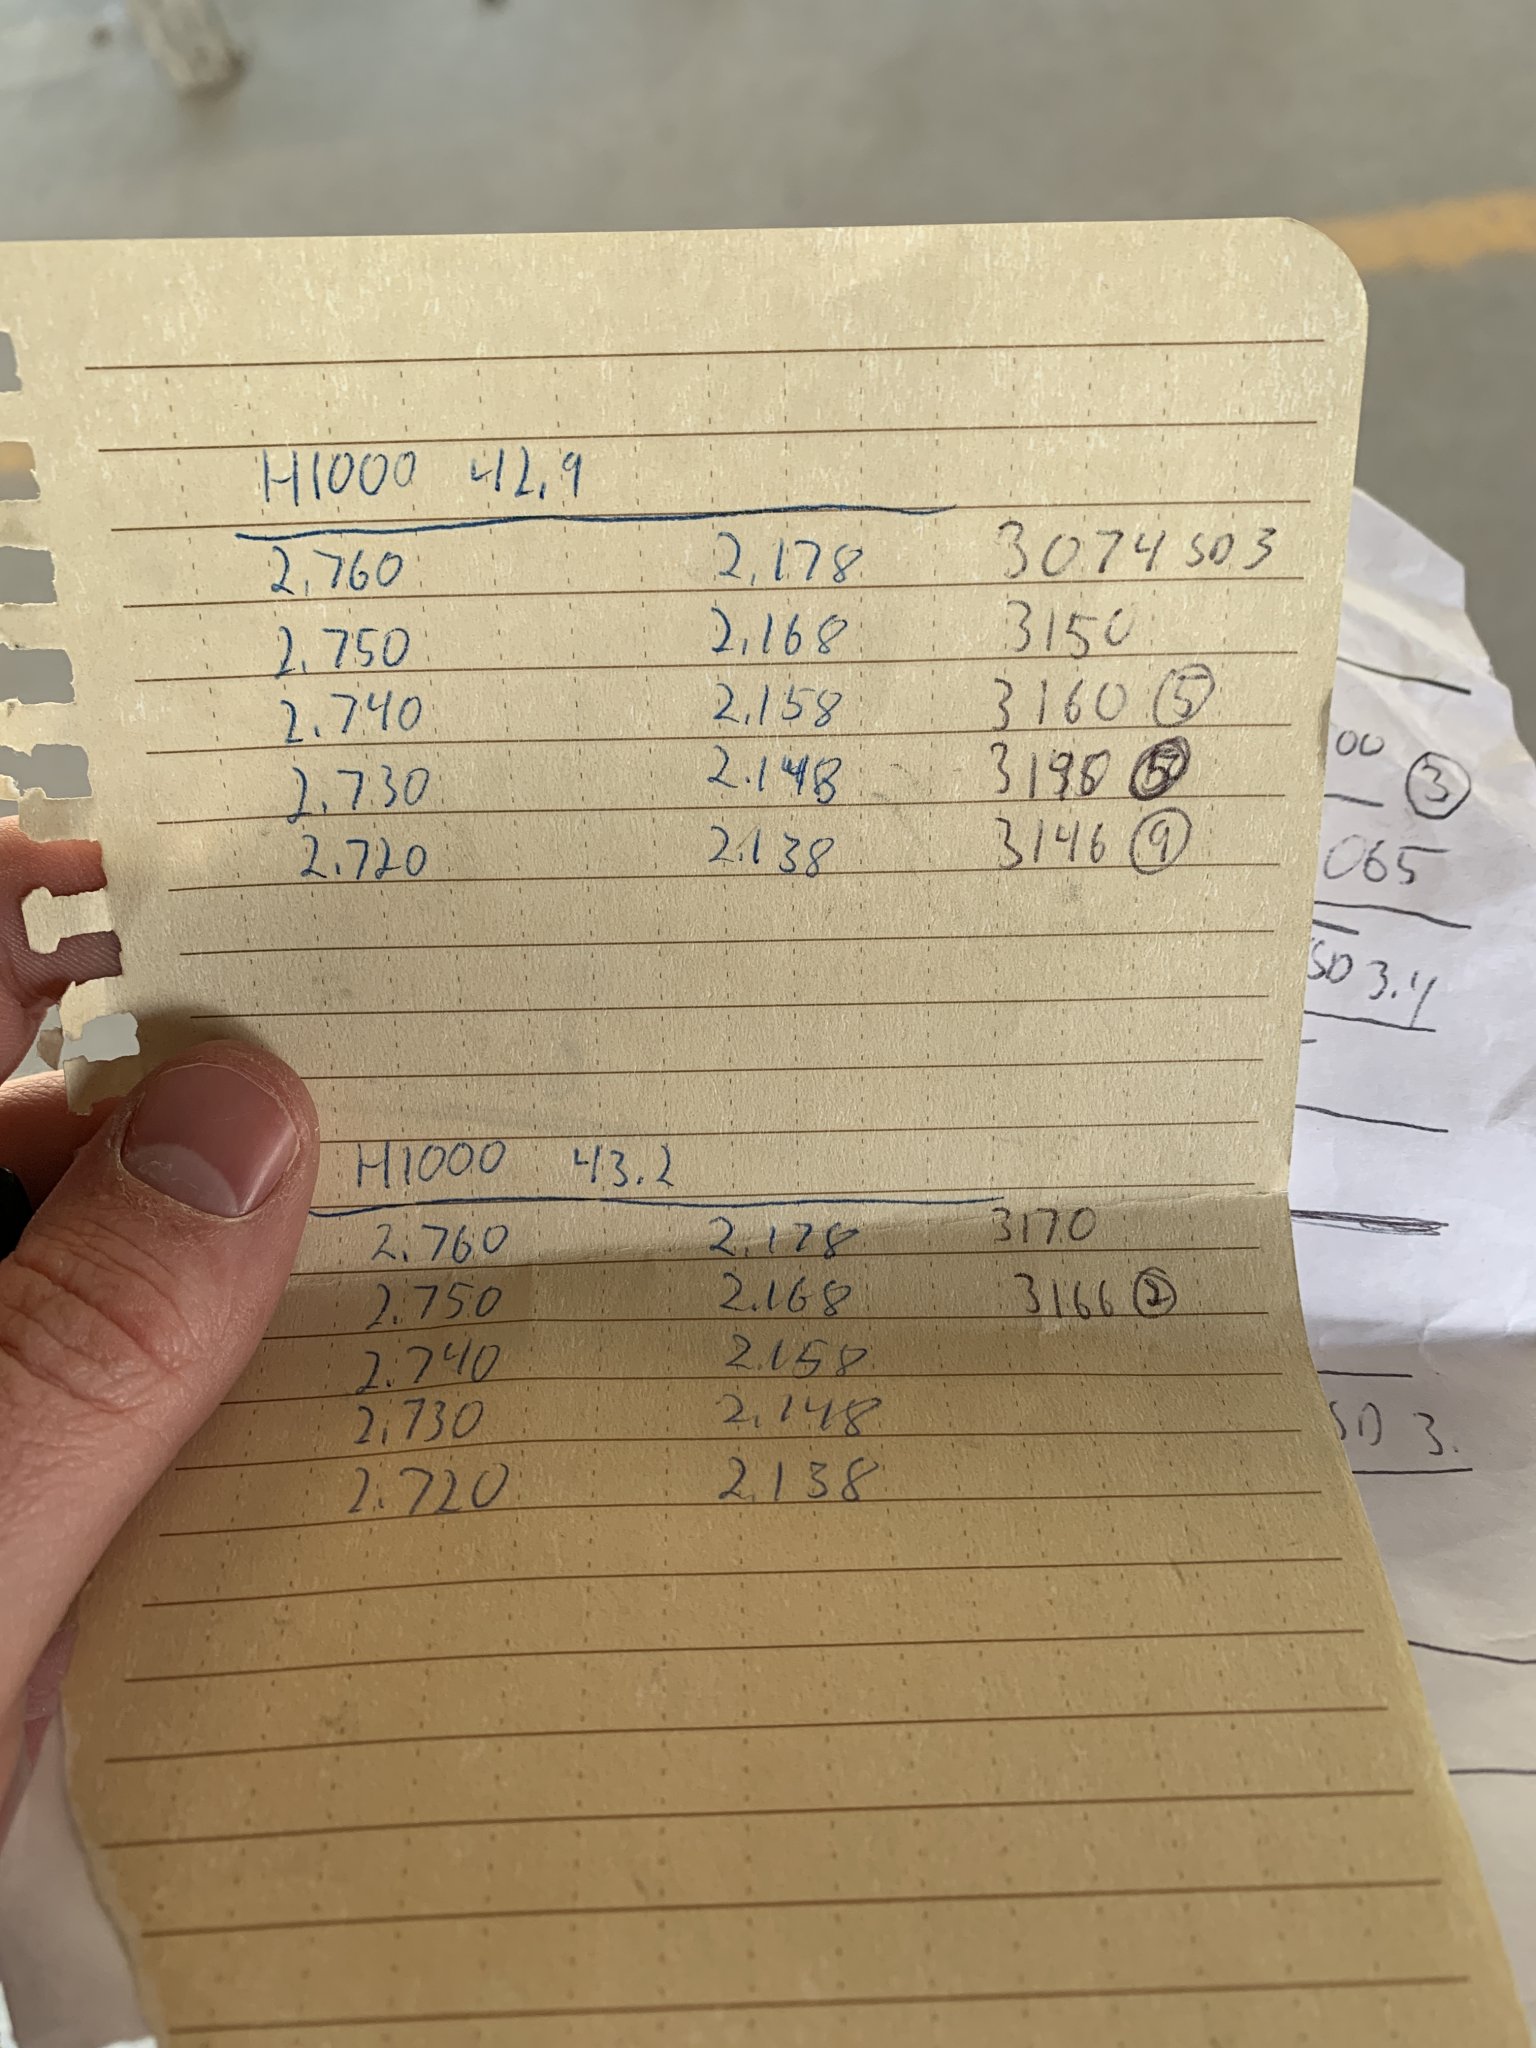 H1000 42.9
2.760 2.178 3074 SD 3
2.750 2.168 3150
2.740 2.158 3160 5
2.730 2.148
2.720 2.138 3146 9
H1000 43.2
2.760 2.178 3170
2.750 2.168 3166 2
2.740 2.158
2.730 2.148
2.720 2.138
00
3
065
SD 3.4
SD 3.